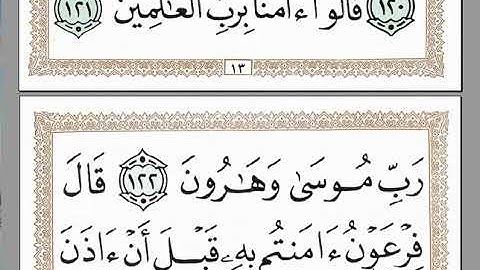 ١٢٠ قالُوٓا۟ ءَامَنَّا بِرَبِّ الْعَالَمِينَ ١٢١
١٣
رَبِّ مُوسَىٰ وَهَارُونَ ١٢٢ قَالَ
فِرْعَوْنُ ءَامَنتُم بِهِۦ قَبْلَ أَنْ ءَاذَنَ